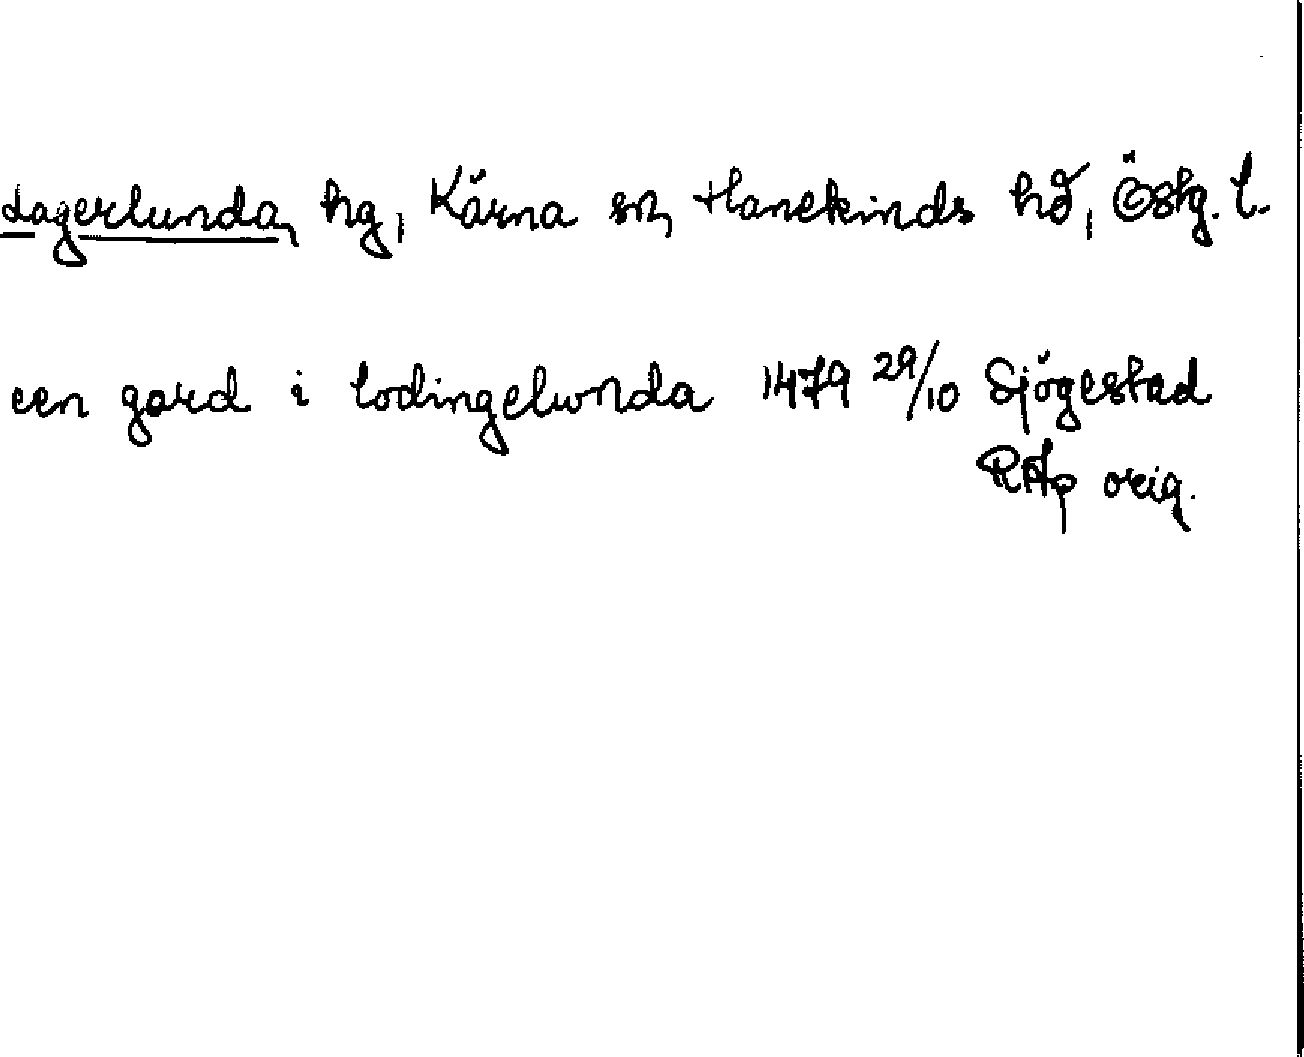 Lagerlunda, hg, Kärna sn, Hanekinds hd, Östg. l.
een gard i lodingelunda 1479 29/10 Sjögestad
RAp orig.